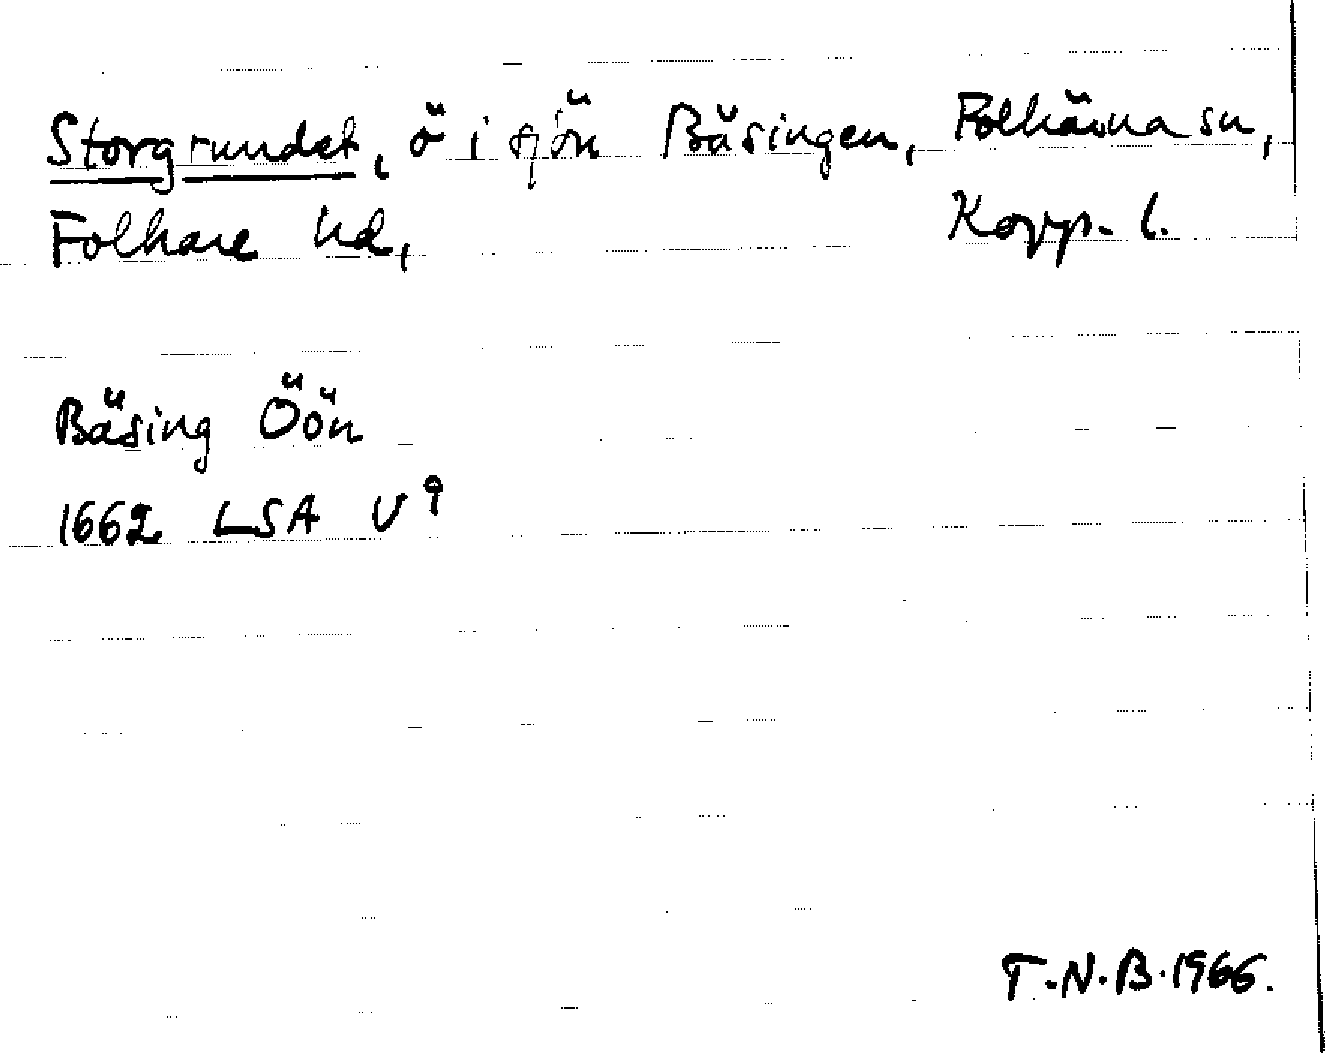 Storgrundet, ö i sjön Bäsingen, Folkärna sn,
Folkare hd, Kopp. l.
Bäsing Öön
1662 LSA U 9
T.N.B. 1966.